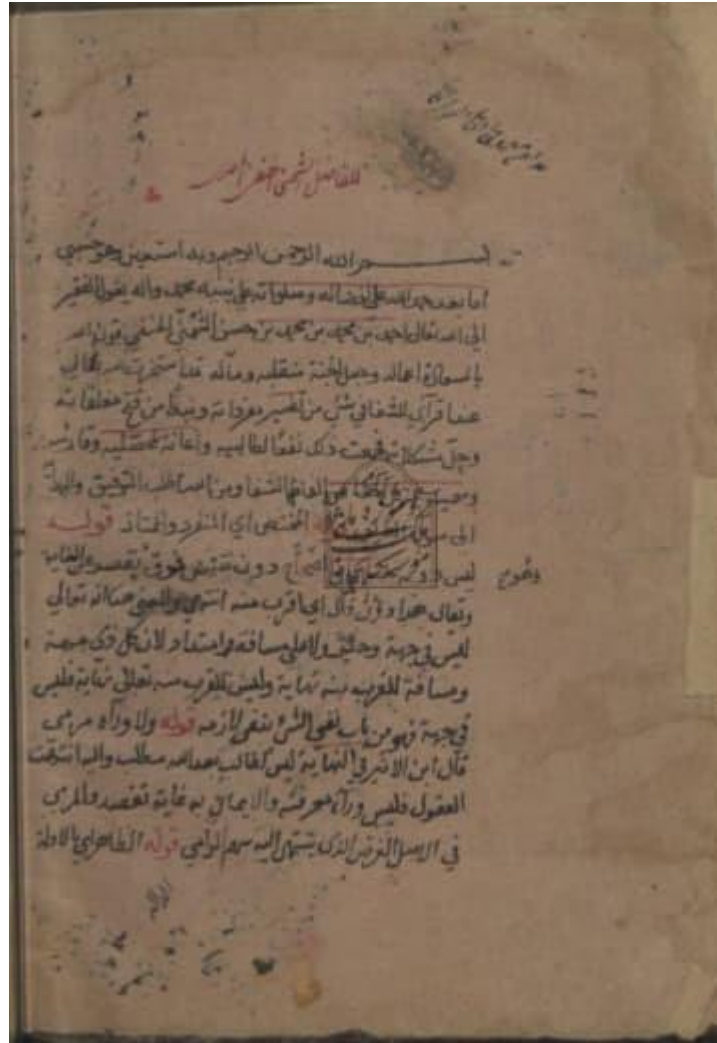 للفاضل الشمني الحنفي
بسم الله الرحمن الرحيم وبه استعين وهو حسبي
اما بعد حمد الله على افضاله وصلواته على نبيه محمد واله يقول الفقير
الى الله تعالى احمد بن محمد بن محمد بن حسن الشمني الحنفي قرن الله
بالسداد اعماله وجعل الجنة منقلبه ومآله قد استخرت الله تعالى
عند قرآتي للشفا في شئ من تفسير مفرداته ونبذ من فتح مغلقاته
وحل مشكلاته فجمعت ذلك نفعا لطالبيه واعانة لمحصليه وقارئيه
وسميته مزيل الخفا عن الفاظ الشفا ومن الله اطلب التوفيق والهداية
الى سواء الطريق المختص اي المنفرد والممتاز قوله
ليس دونه منتهى في الصحاح دون نقيض فوق تقصير عن الغاية
ويقال هذا دون ذاك اي اقرب منه انتهى والمعنى هنا انه تعالى
ليس في جهة وحيز ولا على مسافة وامتداد لان كل ذي جهة
ومسافة للقرب منه نهاية وليس للقرب منه تعالى نهاية فليس
في جهة فهو من باب نفي الشئ بنفي لازمه قوله ولا ورآه مرمى
قال ابن الاثير في النهاية ليس لطالب بعد الله مطلب واليه انتهت
العقول فليس ورآء معرفته والايمان به غاية تقصد والمرمى
في الاصل الغرض الذي ينتهي اليه سهم الرامي قوله الظاهر اي بالادلة